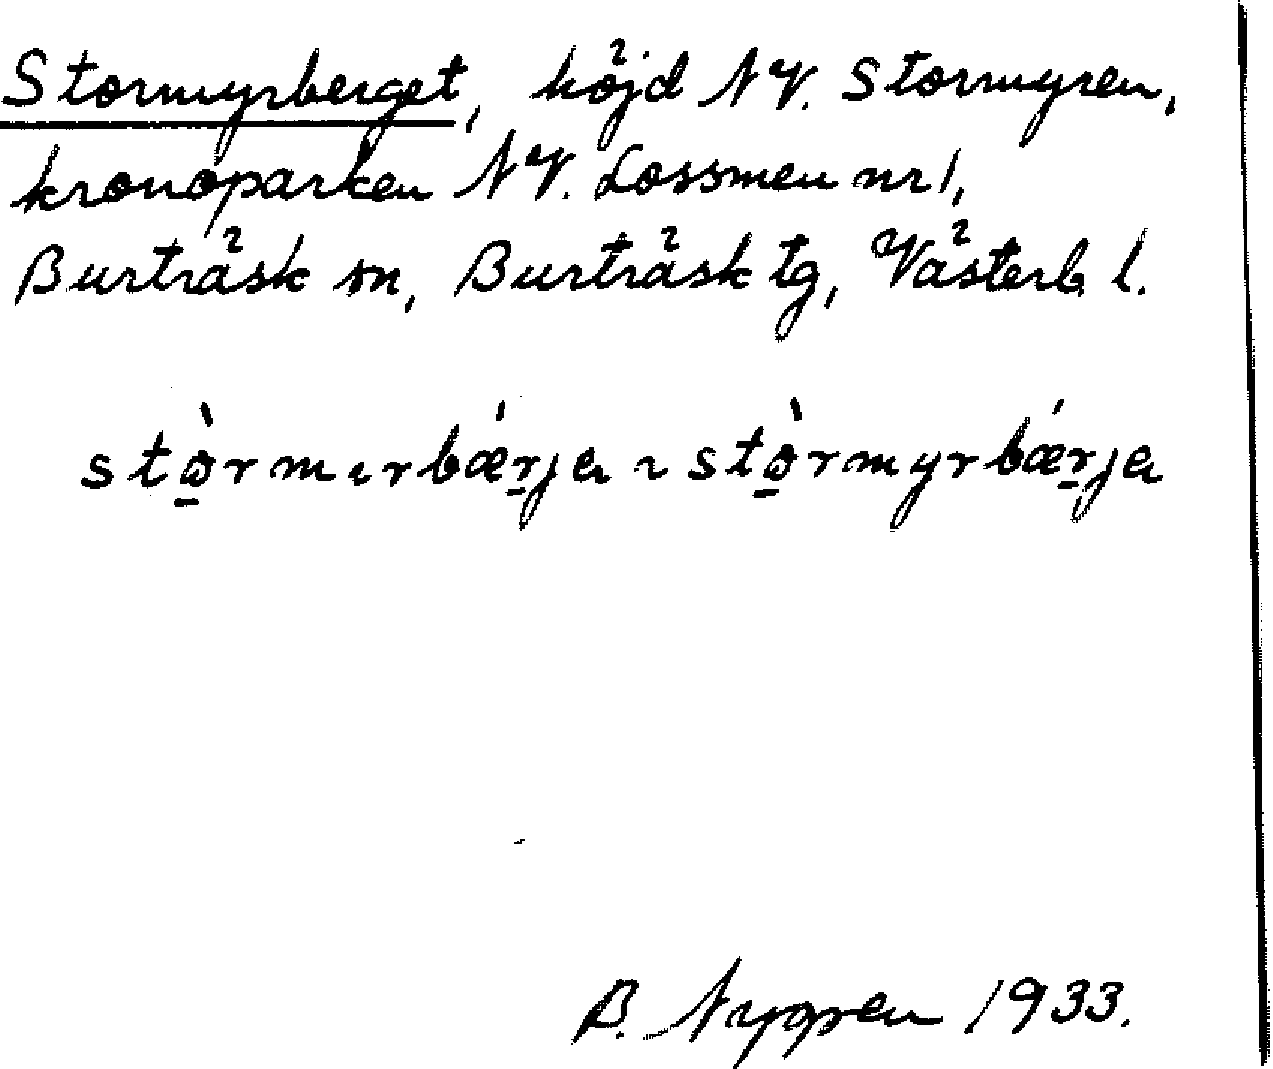 Stormyrberget, höjd NV. Stormyren,
kronoparken NV. Lossmen nr 1,
Burträsk sn, Burträsk tg, Västerb l.
stò̱rmırbǽṟja ~ stò̱rmyrbǽṟja
B. Nygren 1933.